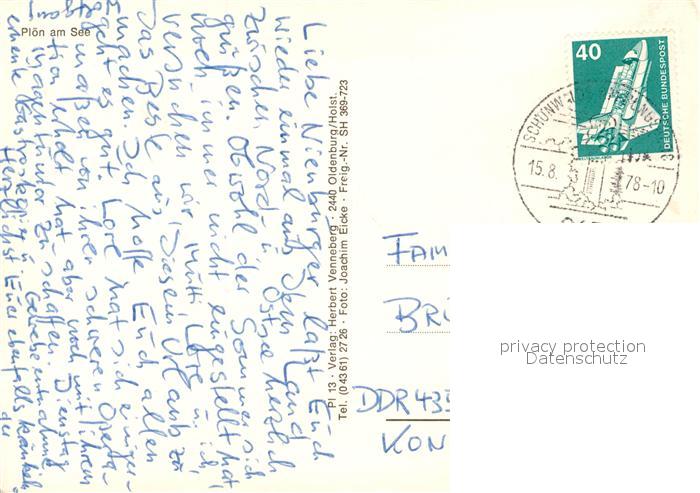 Plön am See
Liebe Nienburger laßt Euch
wieder einmal aus dem Land
zwischen Nord u. Ostsee herzlich
grüßen. Obwohl der Sommer sich
noch immer nicht eingestellt hat
versuchen wir Mutti Lore u. ich
das Beste aus diesem Urlaub zu
machen. Ich hoffe Euch allen
geht es gut. Lore hat sich einiger-
maßen von ihrer schweren Opera-
tion erholt hat aber noch mit ihrem
Magen zu schaffen. Dienstag
Herzlichst Euer ebenfalls
der
Pl 13 · Verlag: Herbert Venneberg · 2440 Oldenburg/Holst.
Tel. (0 43 61) 27 26 · Foto: Joachim Eicke · Freig.-Nr. SH 369-723
40
DEUTSCHE BUNDESPOST
15.8.
78-10
FAM
BRÜ
DDR 435
KÖN
privacy protection
Datenschutz